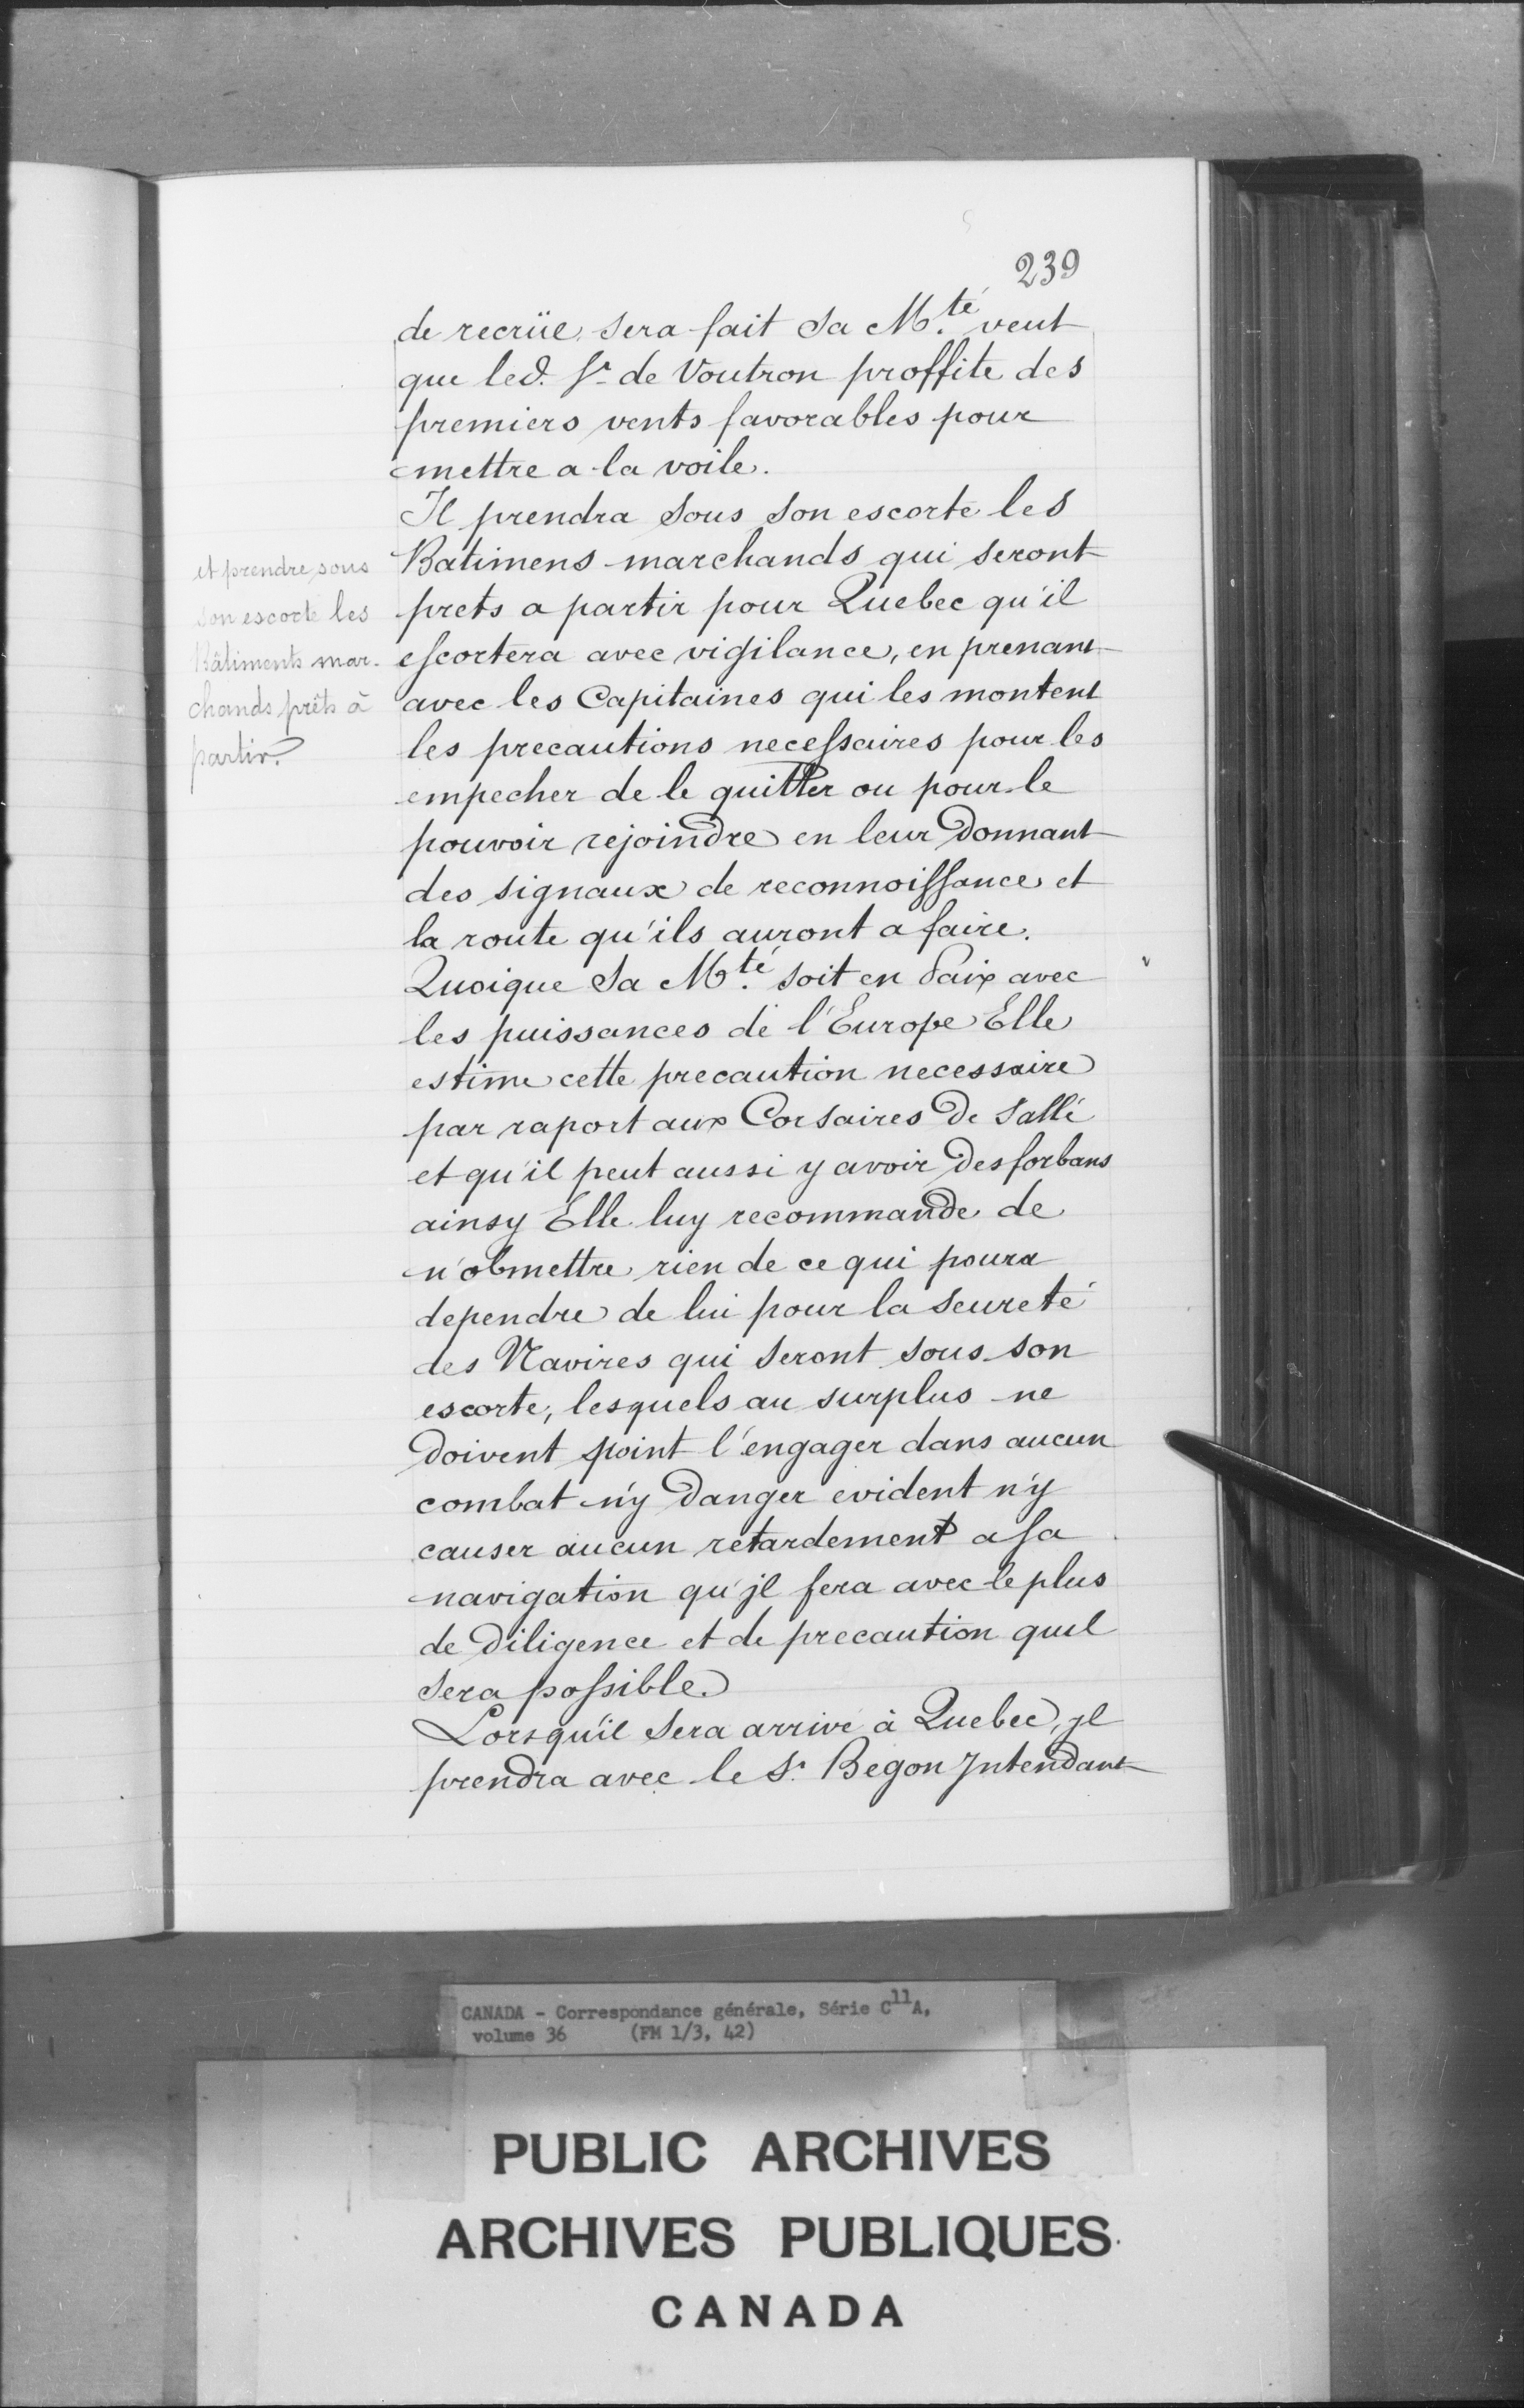 239
de recrüe sera fait Sa M.té veut
que led. Sr de Voutron proffite des
premiers vents favorables pour
mettre a la voile.
Il prendra sous son escorte les
Batimens marchands qui seront
prets a partir pour Quebec qu'il
escortera avec vigilance, en prenant
avec les Capitaines qui les montent
les precautions necessaires pour les
empecher de le quitter ou pour le
pouvoir rejoindre en leur donnant
des signaux de reconnoissance et
la route qu'ils auront a faire.
Quoique Sa M.té soit en Paix avec
les puissances de l'Europe Elle
estime cette precaution necessaire
par raport aux Corsaires de Sallé
et qu'il peut aussi y avoir des forbans
ainsy Elle luy recommande de
n'obmettre rien de ce qui poura
dependre de lui pour la seureté
des Navires qui seront sous son
escorte, lesquels au surplus ne
doivent point l'engager dans aucun
combat n'y danger evident n'y
causer aucun retardement a sa
navigation qu'jl fera avec le plus
de diligence et de precaution quil
sera possible.
Lorsqu'il sera arrivé à Quebec, jl
prendra avec le Sr. Begon Jntendant
et prendre sous
son escorte les
Bâtiments mar-
chands prêts à
partir.
CANADA - Correspondance générale, Série C11A,
volume 36 (FM 1/3, 42)
PUBLIC ARCHIVES
ARCHIVES PUBLIQUES
CANADA